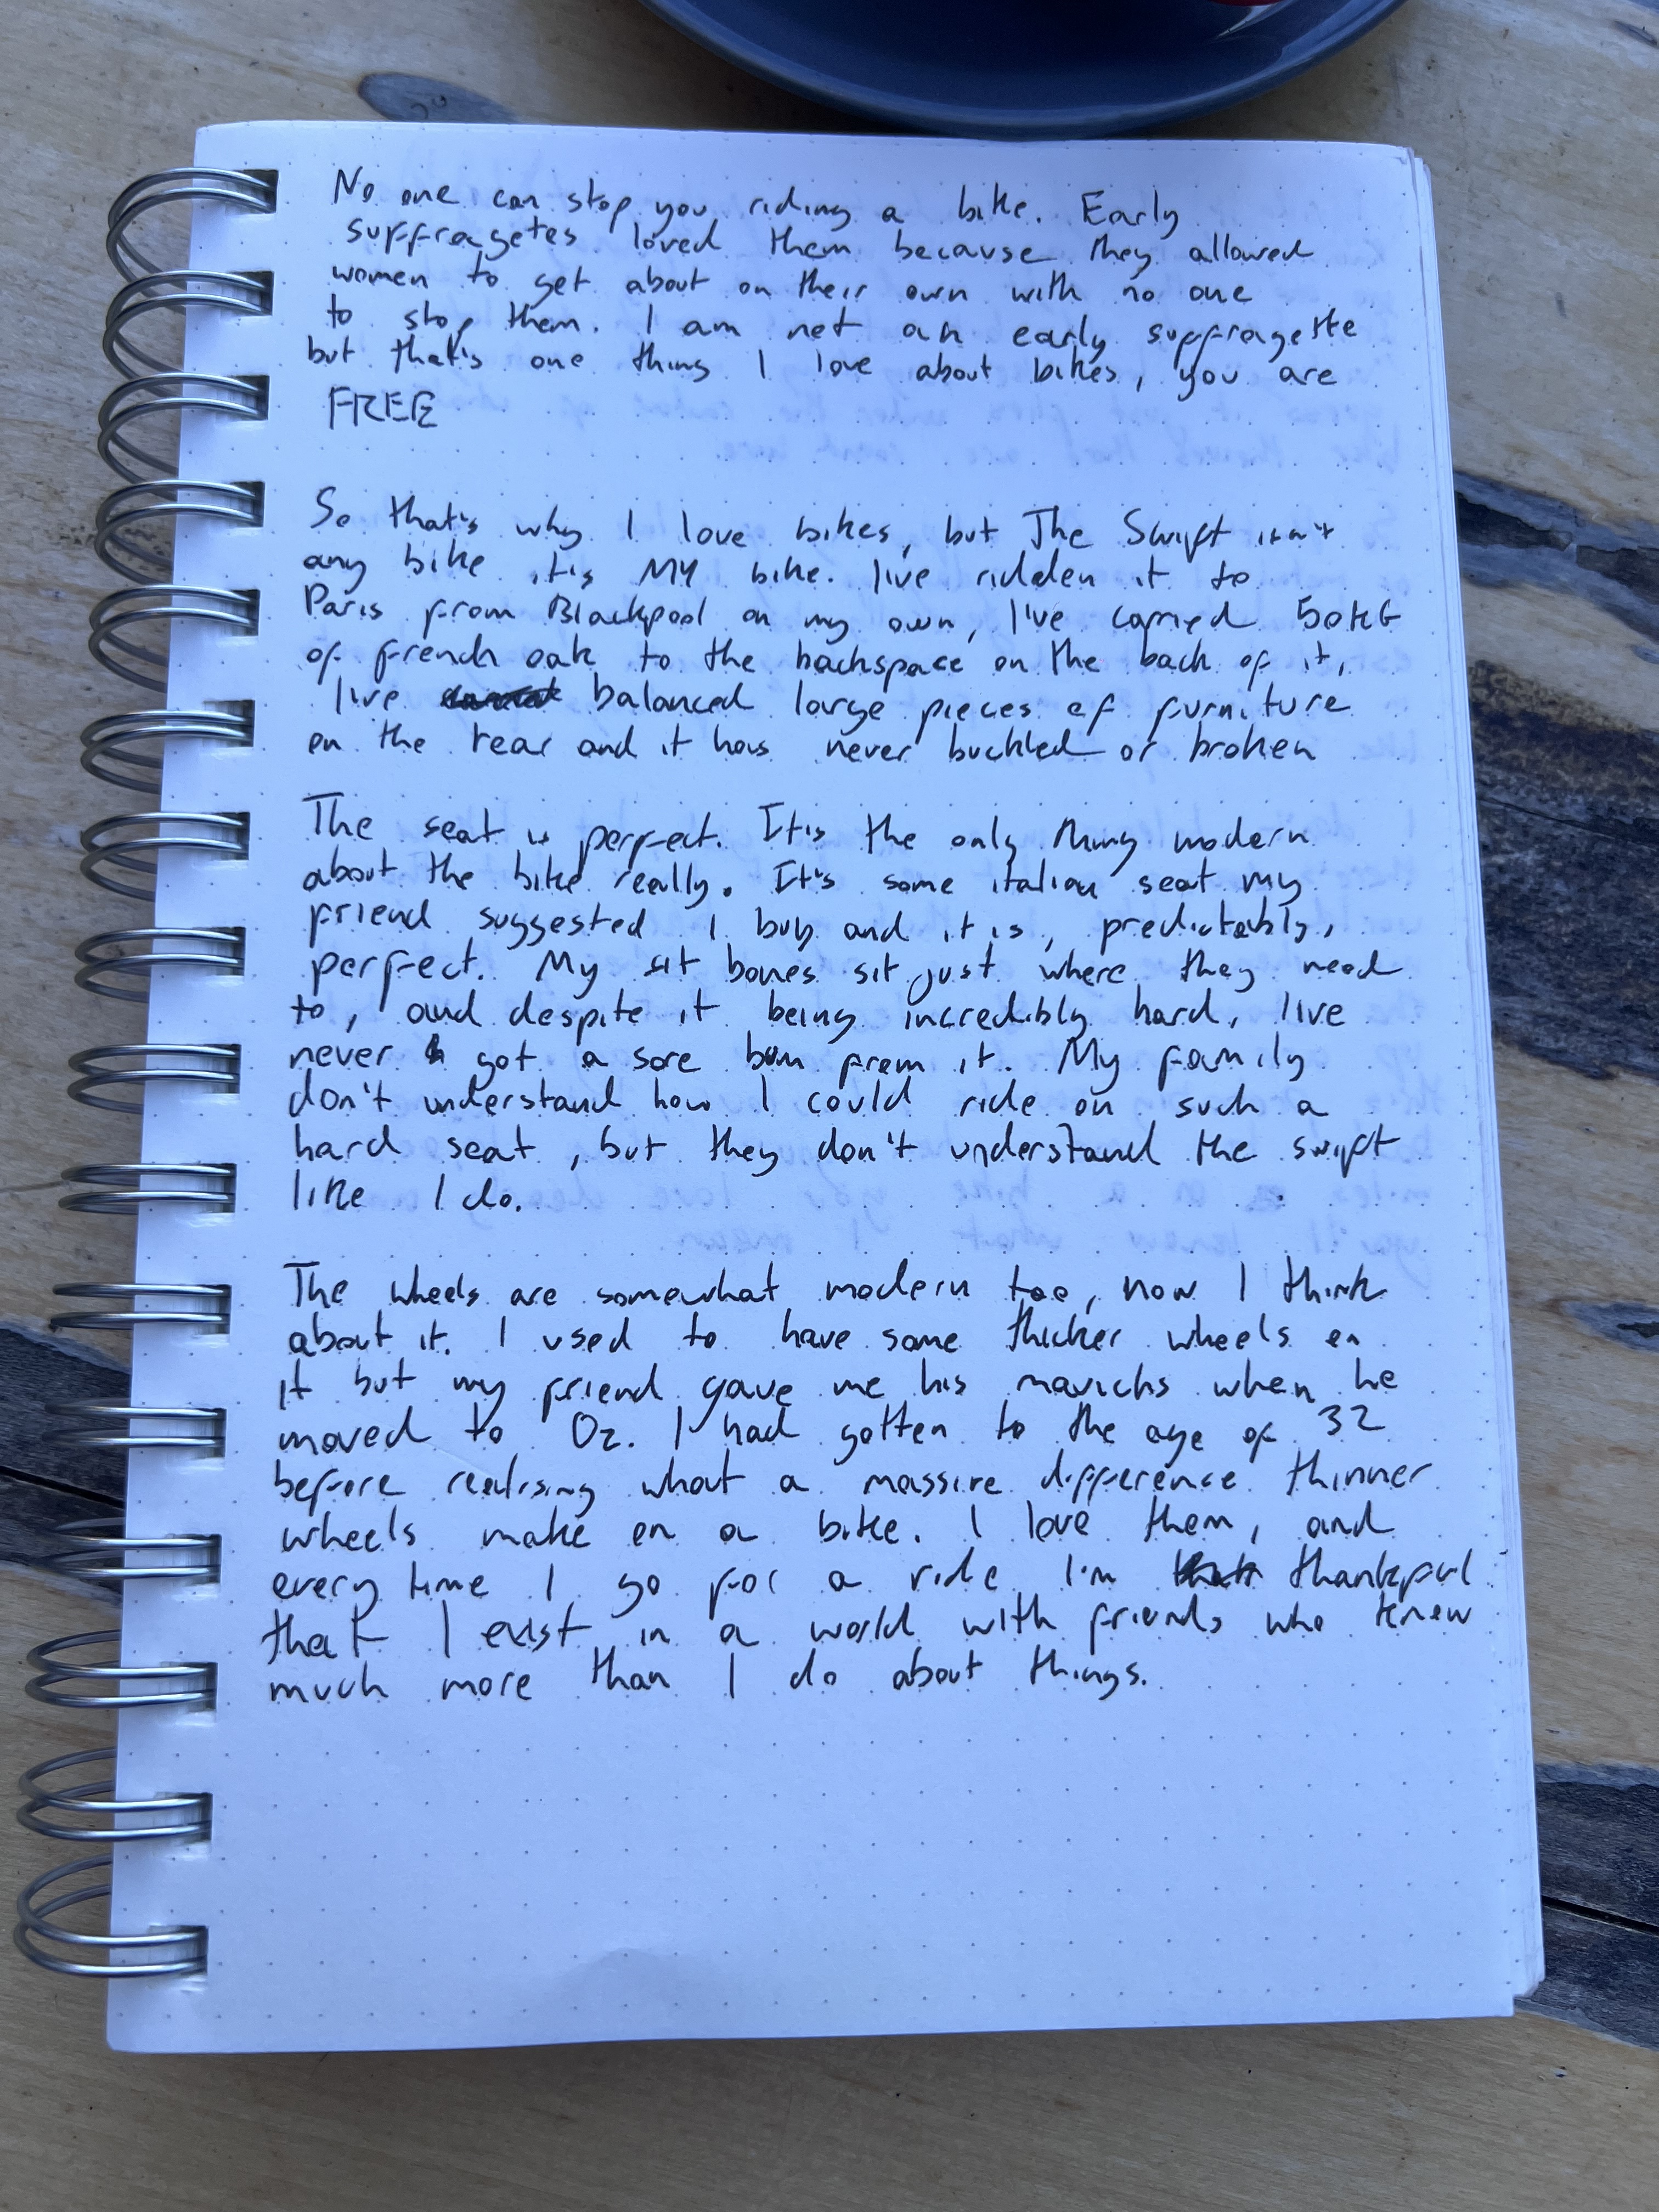 No one can stop you riding a bike. Early
suffragetes loved them because they allowed
women to get about on their own with no one
to stop them. I am not an early suffragette
but that's one thing I love about bikes, you are
FREE
So that's why I love bikes, but The Swift isn't
any bike it is MY bike. I've ridden it to
Paris from Blackpool on my own, I've carried 50KG
of french oak to the hackspace on the back of it,
I've balanced large pieces of furniture
on the rear and it has never buckled or broken
The seat is perfect. It is the only thing modern
about the bike really. It's some italian seat my
friend suggested I buy and it is, predictably,
perfect. My sit bones sit just where they need
to, and despite it being incredibly hard, I've
never got a sore bum from it. My family
don't understand how I could ride on such a
hard seat, but they don't understand the swift
like I do.
The wheels are somewhat modern too, now I think
about it. I used to have some thicker wheels on
it but my friend gave me his mavichs when he
moved to Oz. I had gotten to the age of 32
before realising what a massive difference thinner
wheels make on a bike. I love them, and
every time I go for a ride I'm thankful
that I exist in a world with friends who know
much more than I do about things.